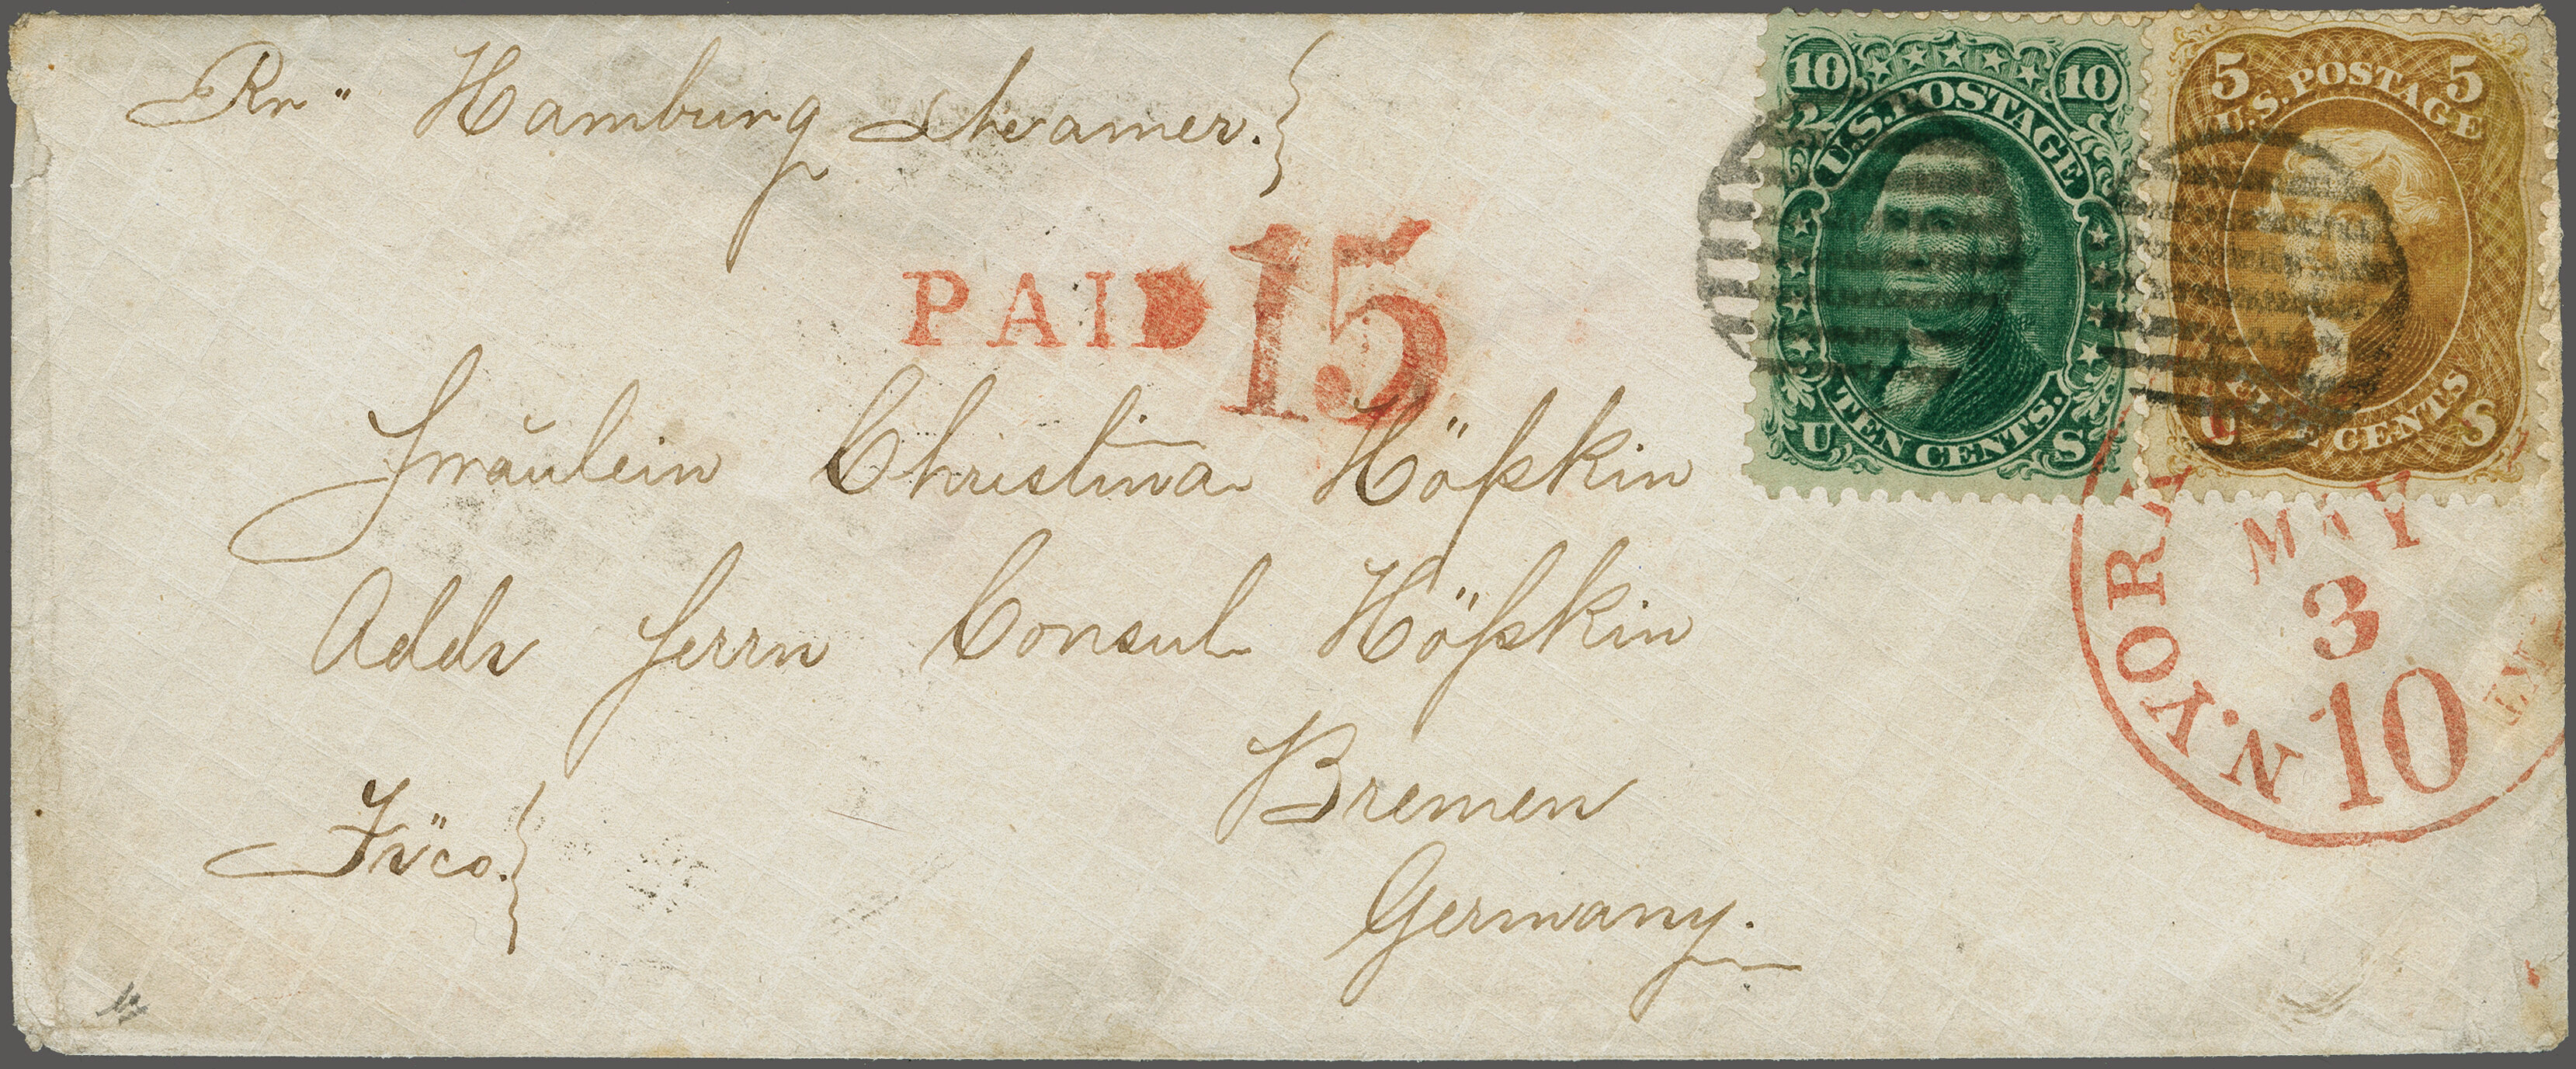 Pr" Hamburg Steamer.
10 10
U.S. POSTAGE
TEN CENTS.
U S
5 5
U.S. POSTAGE
CENTS
U S
PAID 15
Fräulein Christina Höpkin
Addr Herrn Consul Höpkin
Bremen
Germany.
Frco.
N. YORK
MAY
3
10